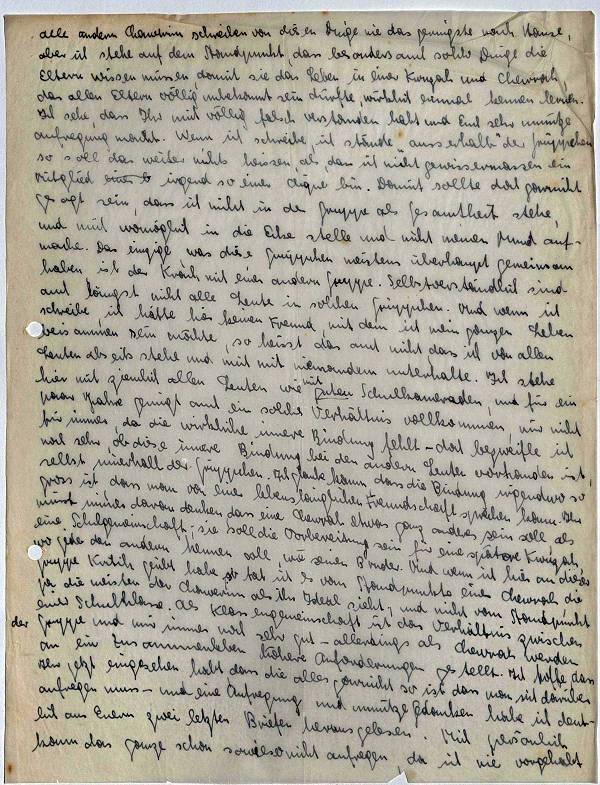 alle andern Chawerim schreiben von diesen Dinge nie das geringste nach Hause,
aber ich stehe auf dem Standpunkt, dass besonders auch solche Dinge die
Eltern wissen müssen, damit sie das Leben in einer Kwuzah und Chewrah,
das allen Eltern völlig unbekannt sein dürfte, wirklich einmal kennen lernen.
Ich sehe, dass Ihr mich völlig falsch verstanden habt und Euch sehr unnütze
Aufregung macht. Wenn ich schreibe, ich stände "ausserhalb" der Grüppchen
so soll das weiter nichts heissen als, dass ich nicht gewissermassen ein
Mitglied irgend so einer Clique bin. Damit sollte doch garnicht
gesagt sein, dass ich nicht in der Gruppe als Gesamtheit stehe,
und mich womöglich in die Ecke stelle und nicht meinen Mund auf-
mache. Das einzige was diese Grüppchen meistens überhaupt gemeinsam
haben ist der Krach mit einer andern Gruppe. Selbstverständlich sind
auch längst nicht alle Leute in solchen Grüppchen. Und wenn ich
schreibe ich hätte hier keinen Freund, mit dem ich mein ganzes Leben
beisammen sein möchte, so heisst das auch nicht dass ich von allen
Leuten abseits stehe und mich mit niemandem unterhalte. Ich stehe
hier mit ziemlich allen Leuten wie mit guten Schulkameraden, und für ein
paar Jahre genügt auch ein solches Verhältnis vollkommen, nur nicht
für immer, da die wirkliche innere Bindung fehlt – doch bezweifle ich
noch sehr, ob diese innere Bindung bei den andern Leuten vorhanden ist,
selbst innerhalb der Grüppchen. Ich glaube kaum dass die Bindung irgendwo so
gross ist dass man von einer lebenslänglichen Freundschaft sprechen kann. Ihr
müsst immer daran denken dass eine Chewrah etwas ganz anderes sein soll als
eine Schulgemeinschaft; sie soll die Vorbereitung sein für eine spätere Kwuzah,
wo jeder den andern kennen soll wie seinen Bruder. Und wenn ich hier an dieser
Gruppe Kritik geübt habe so tat ich es vom Standpunkte einer Chewrah die
ja die meisten der Chawerim als ihr Ideal sieht, und nicht vom Standpunkt
einer Schulklasse. Als Klassengemeinschaft ist das Verhältnis zwischen
der Gruppe und mir immer noch sehr gut – allerdings als Chewrah werden
an ein Zusammenleben höhere Anforderungen gestellt. Ich hoffe dass
Ihr jetzt eingesehen habt dass die alles garnicht so ist dass man sich darüber
aufregen muss – und eine Aufregung und unnütze Gedanken habe ich deut-
lich aus Euern zwei letzten Briefen herausgelesen. Mich persönlich
kann das ganze schon sowieso nicht aufregen, da ich nie vorgehabt